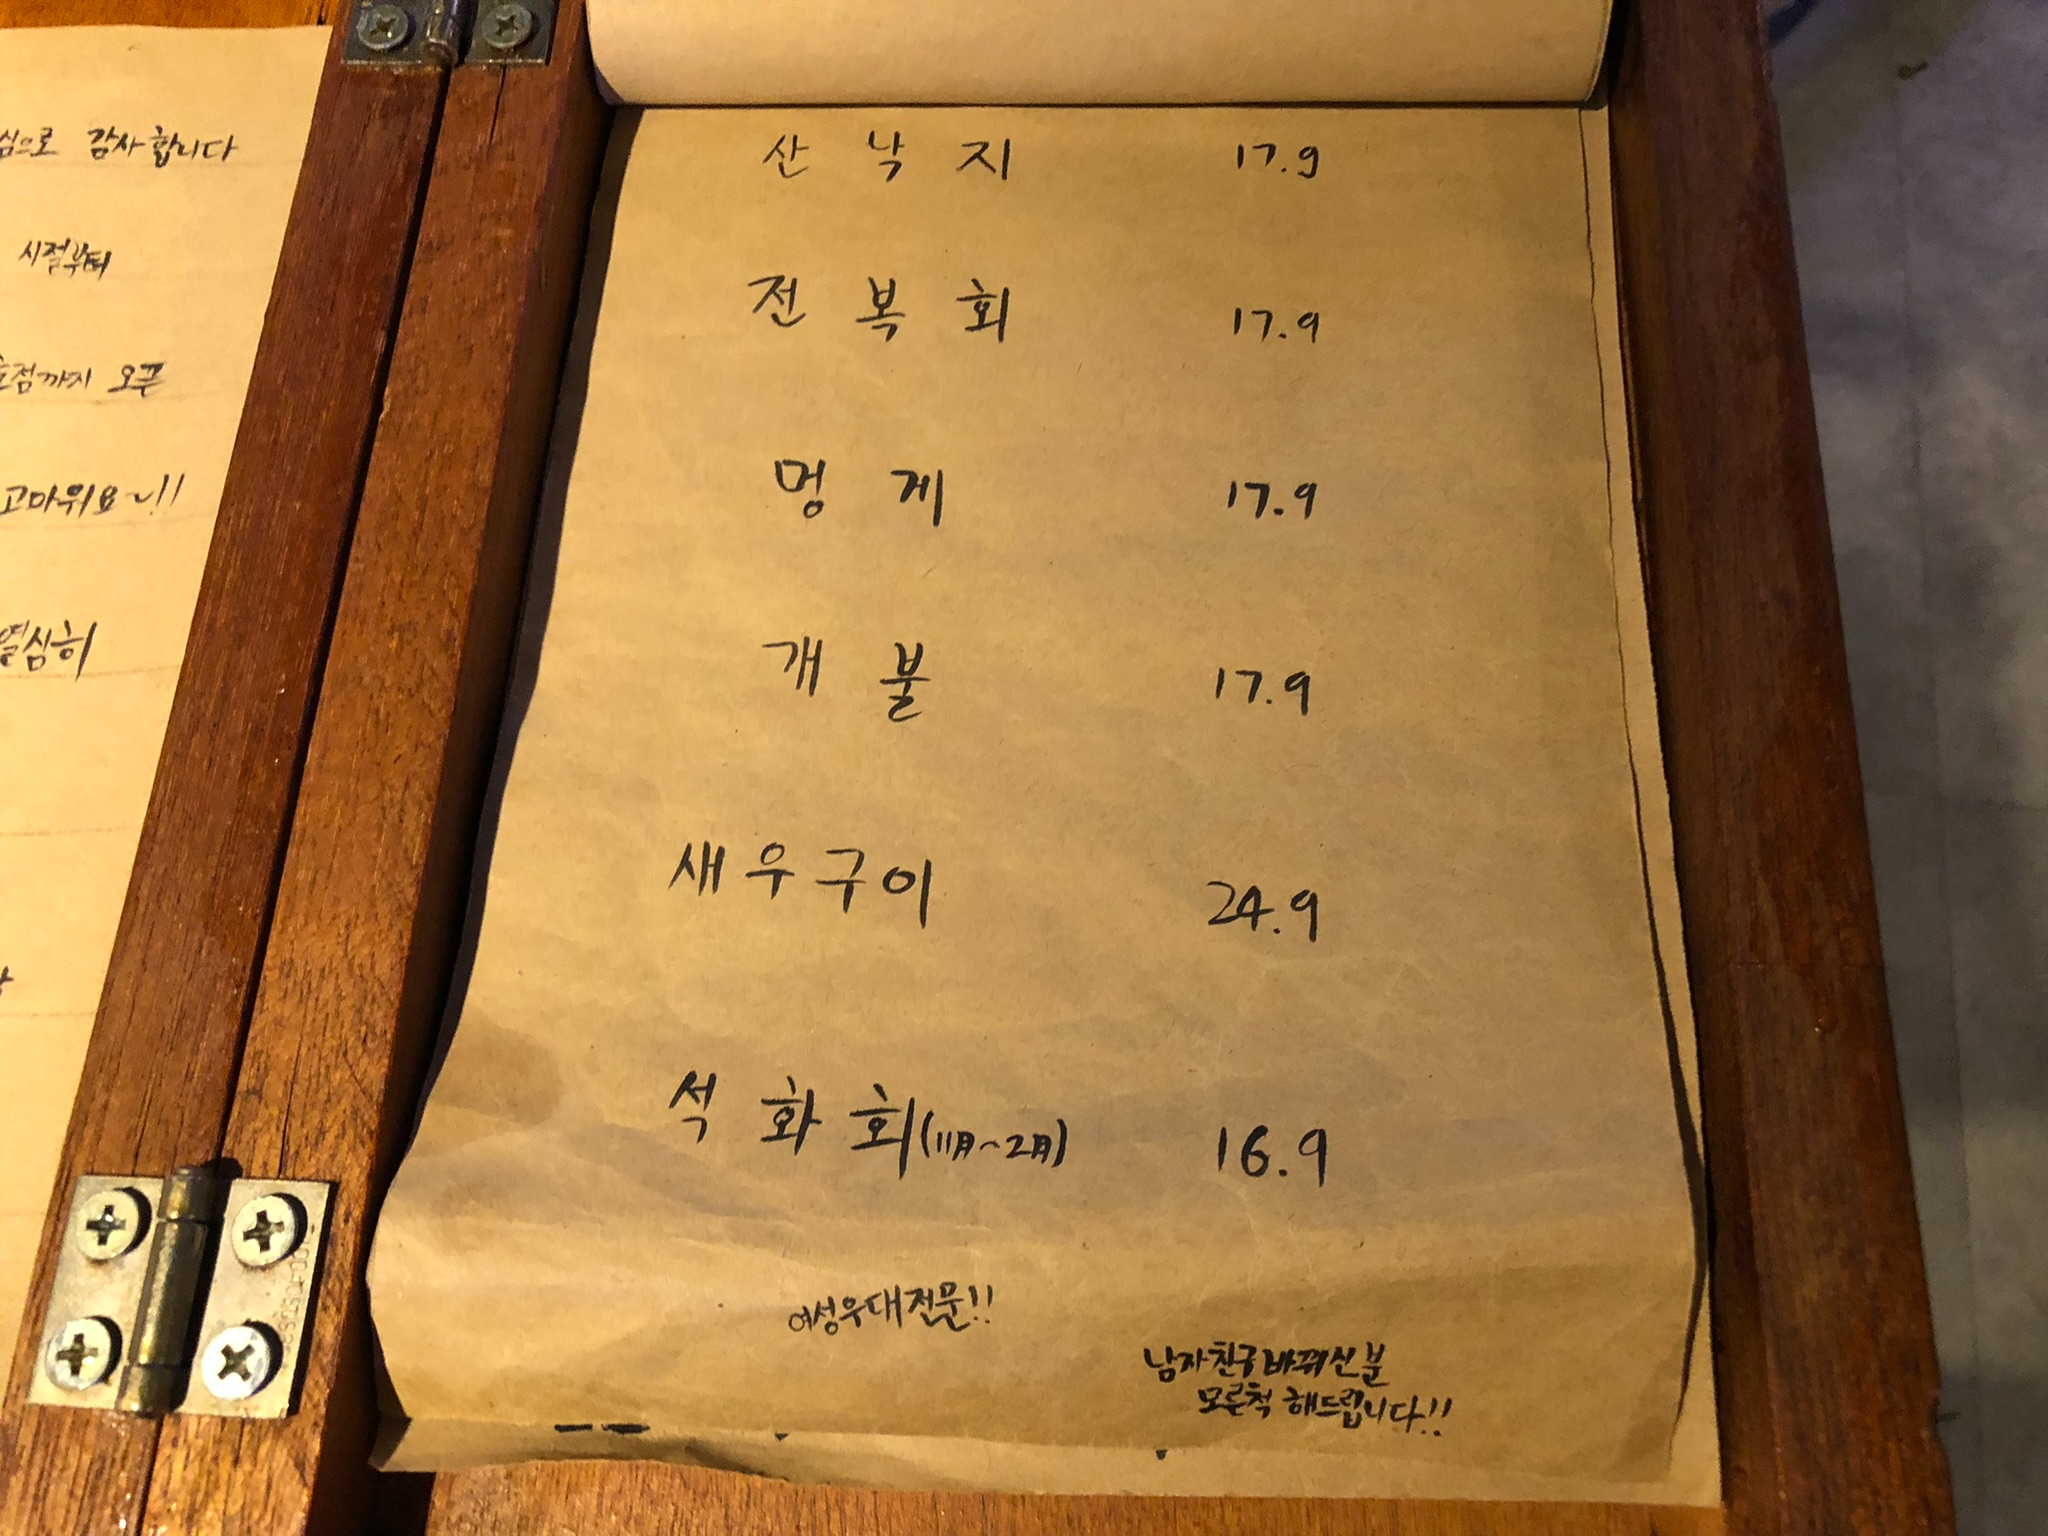 감사합니다
시절부터
오픈
고마워요~!!
열심히
산 낙 지 17.9
전 복 회 17.9
멍 게 17.9
개 불 17.9
새우구이 24.9
석 화 회(11月~2月) 16.9
여성우대전문!!
남자친구바꿔신분
모른척 해드립니다!!